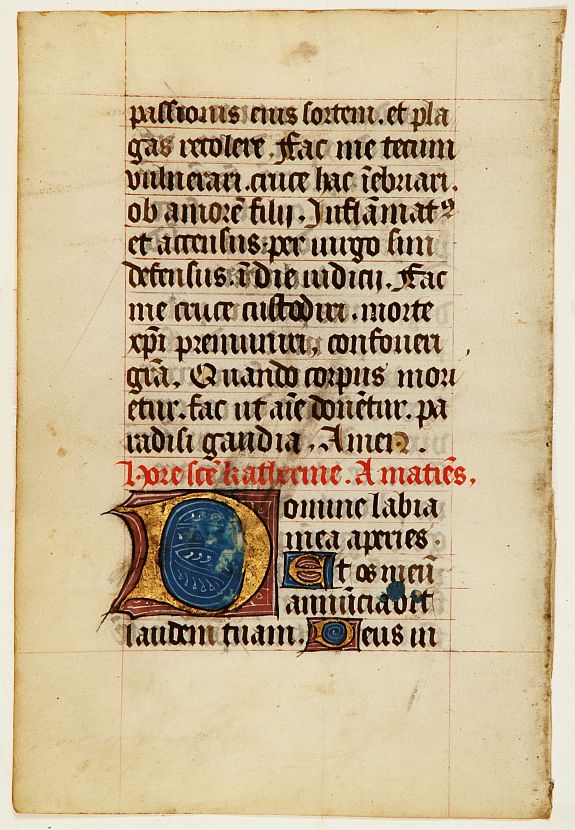 passionis eius sortem. et pla
gas recolere. Fac me tecum
vulnerari. cruce hac īebriari.
ob amorē filij. Inflāmatꝰ
et accensus. per uirgo sim
defensus. ī die iudicij. Fac
me cruce custodiri. morte
xp̄i premuniri, confoueri
gr̄a. Quando corpus mori
etur. fac ut aīe donetur. pa
radisi gaudia. Amen.
Hore sc̄e katherine. A matiēs.
Domine labia
mea aperies.
Et os meū
annūciabit
laudem tuam. Deus in